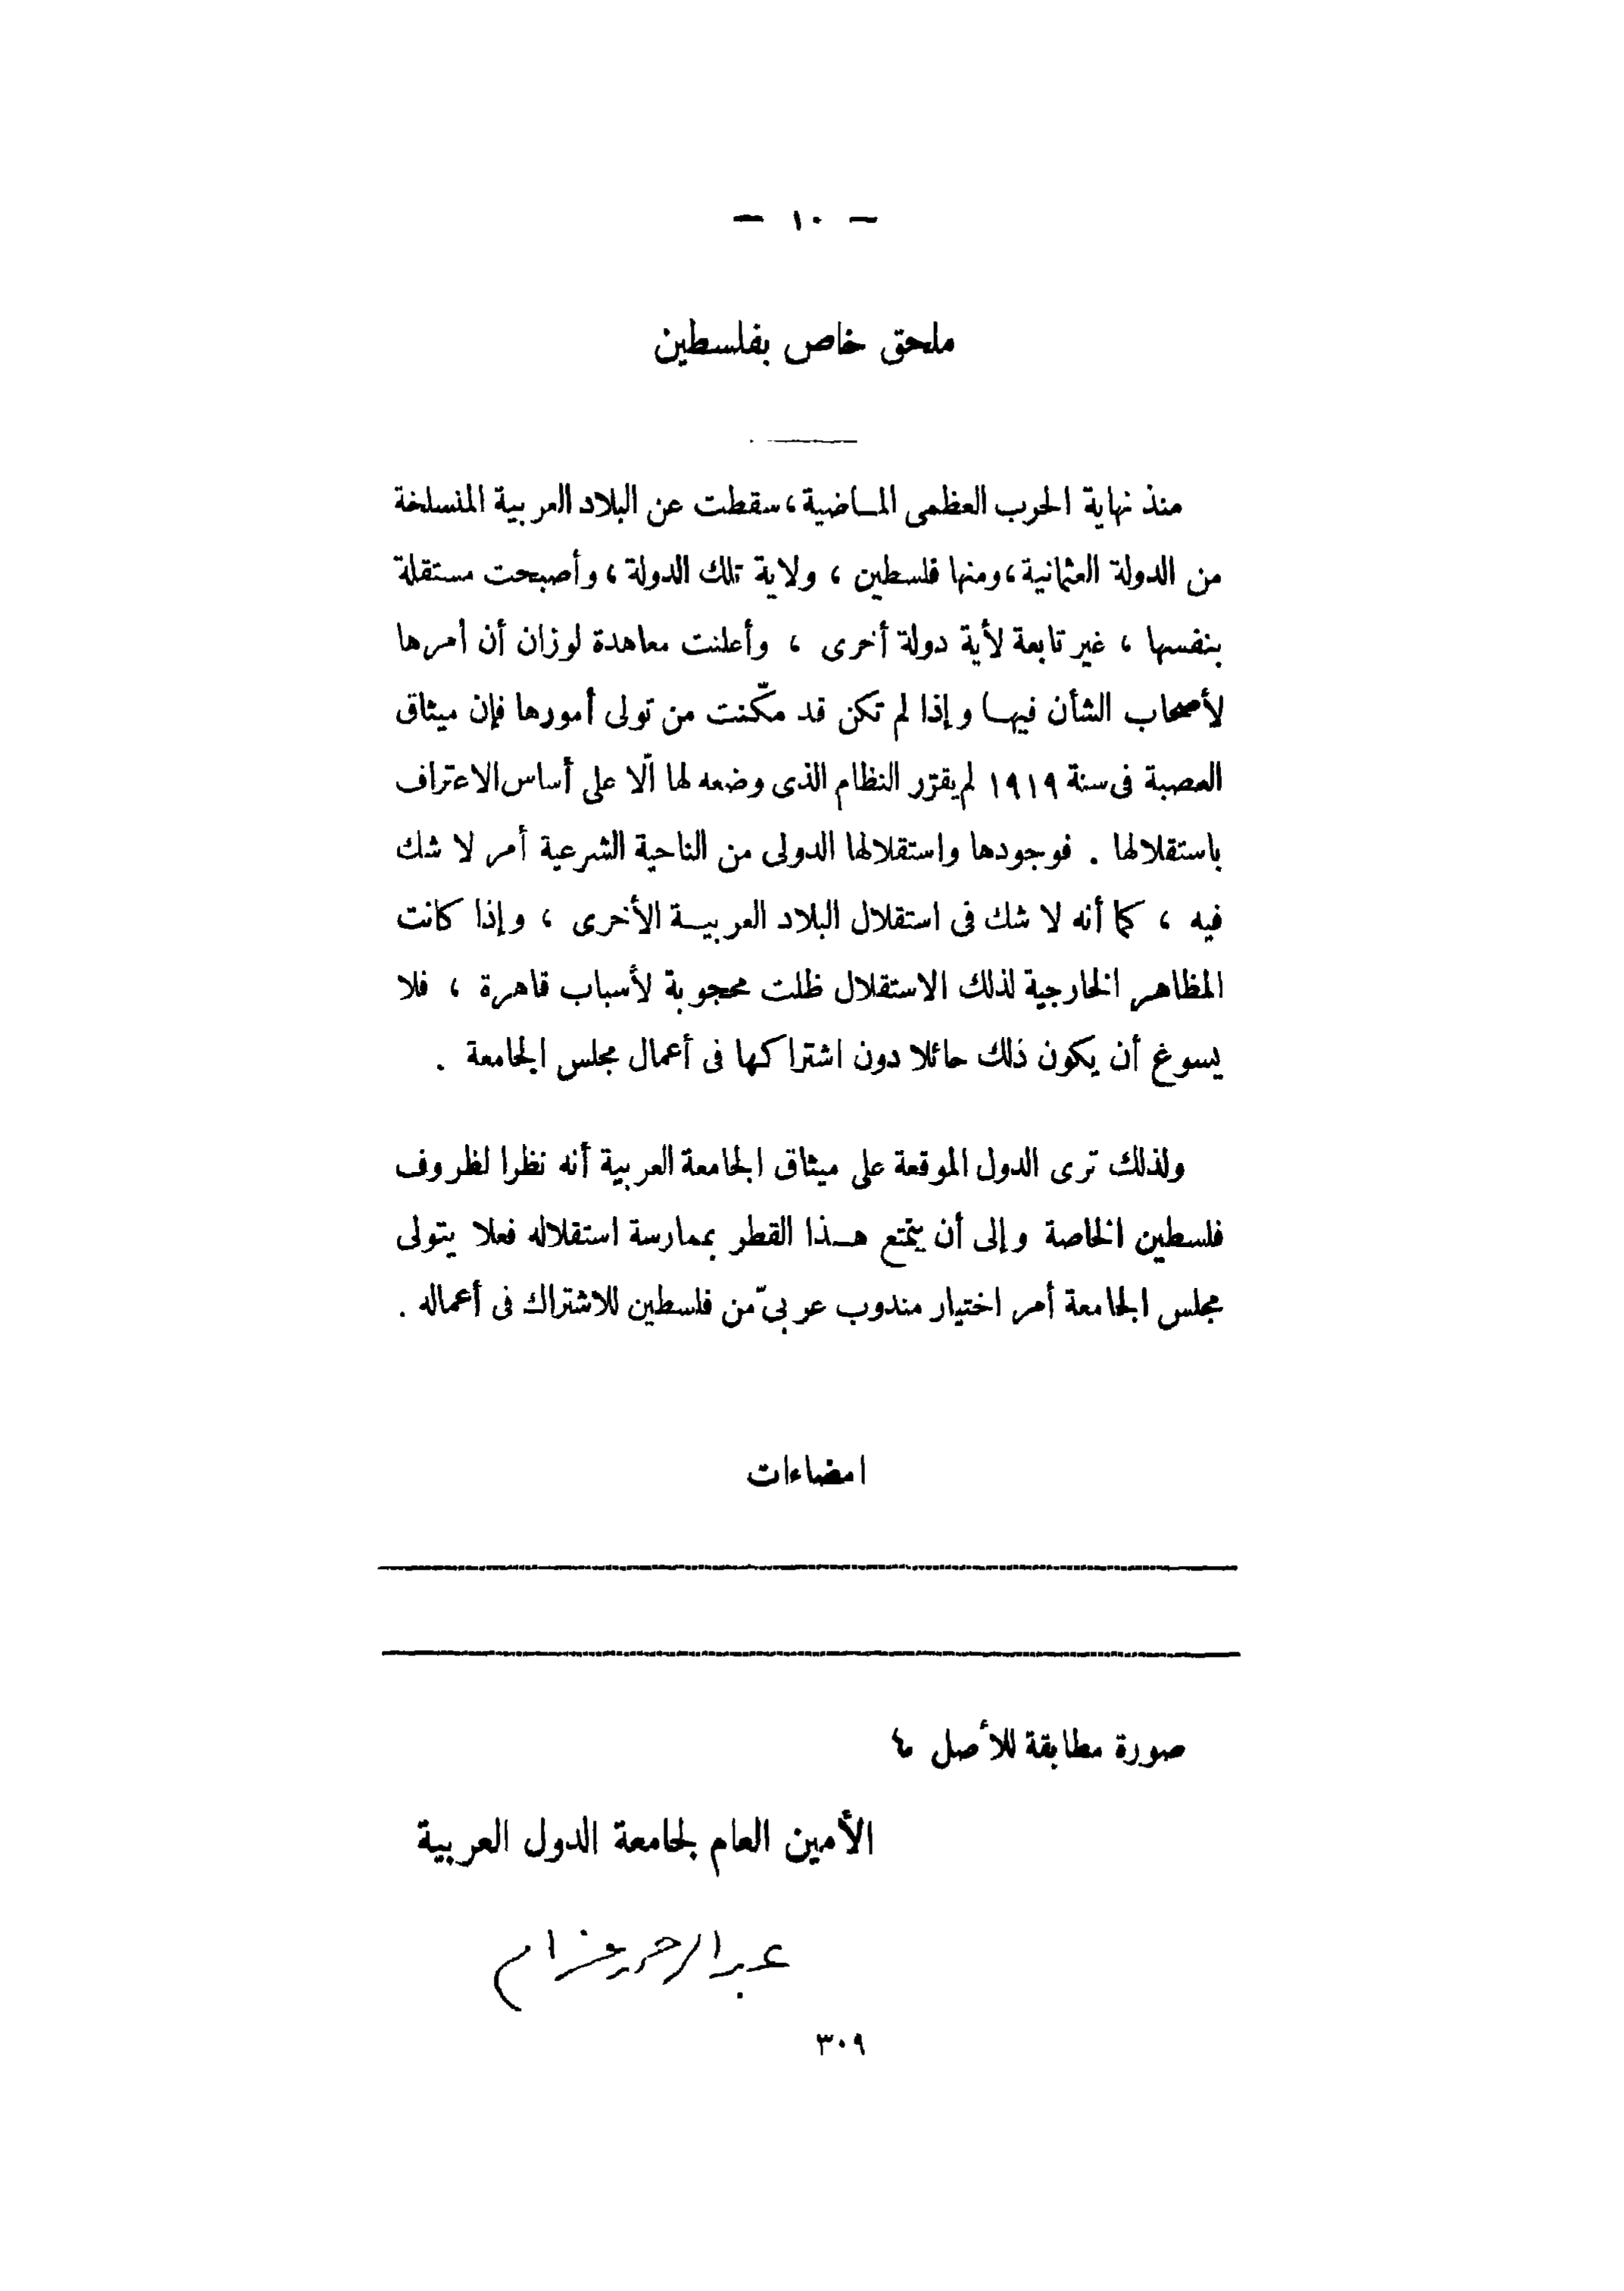 — ١٠ —
ملحق خاص بفلسطين
منذ نهاية الحرب العظمى المـاضية، سقطت عن البلاد العربية المنسلخة
من الدولة العثمانية، ومنها فلسطين ، ولاية تلك الدولة ، وأصبحت مستقلة
بنفسها ، غير تابعة لأية دولة أخرى ، وأعلنت معاهدة لوزان أن أمرها
لأصحاب الشأن فيهـا وإذا لم تكن قد مكّنت من تولى أمورها فإن ميثاق
العصبة فى سنة ١٩١٩ لم يقرّر النظام الذى وضعه لها الّا على أساس الاعتراف
باستقلالها . فوجودها واستقلالها الدولى من الناحية الشرعية أمر لا شك
فيه ، كما أنه لا شك فى استقلال البلاد العربيـة الأخرى ، وإذا كانت
المظاهر الخارجية لذلك الاستقلال ظلت محجوبة لأسباب قاهرة ، فلا
يسوغ أن يكون ذلك حائلا دون اشتراكها فى أعمال مجلس الجامعة .
ولذلك ترى الدول الموقعة على ميثاق الجامعة العربية أنه نظرا لظروف
فلسطين الخاصة وإلى أن يتمتع هـذا القطر بممارسة استقلاله فعلا يتولى
مجلس الجامعة أمر اختيار مندوب عربىّ من فلسطين للاشتراك فى أعماله .
امضاءات
صورة مطابقة للأصل
الأمين العام لجامعة الدول العربية
عبد الرحمن عزام
٣٠٩